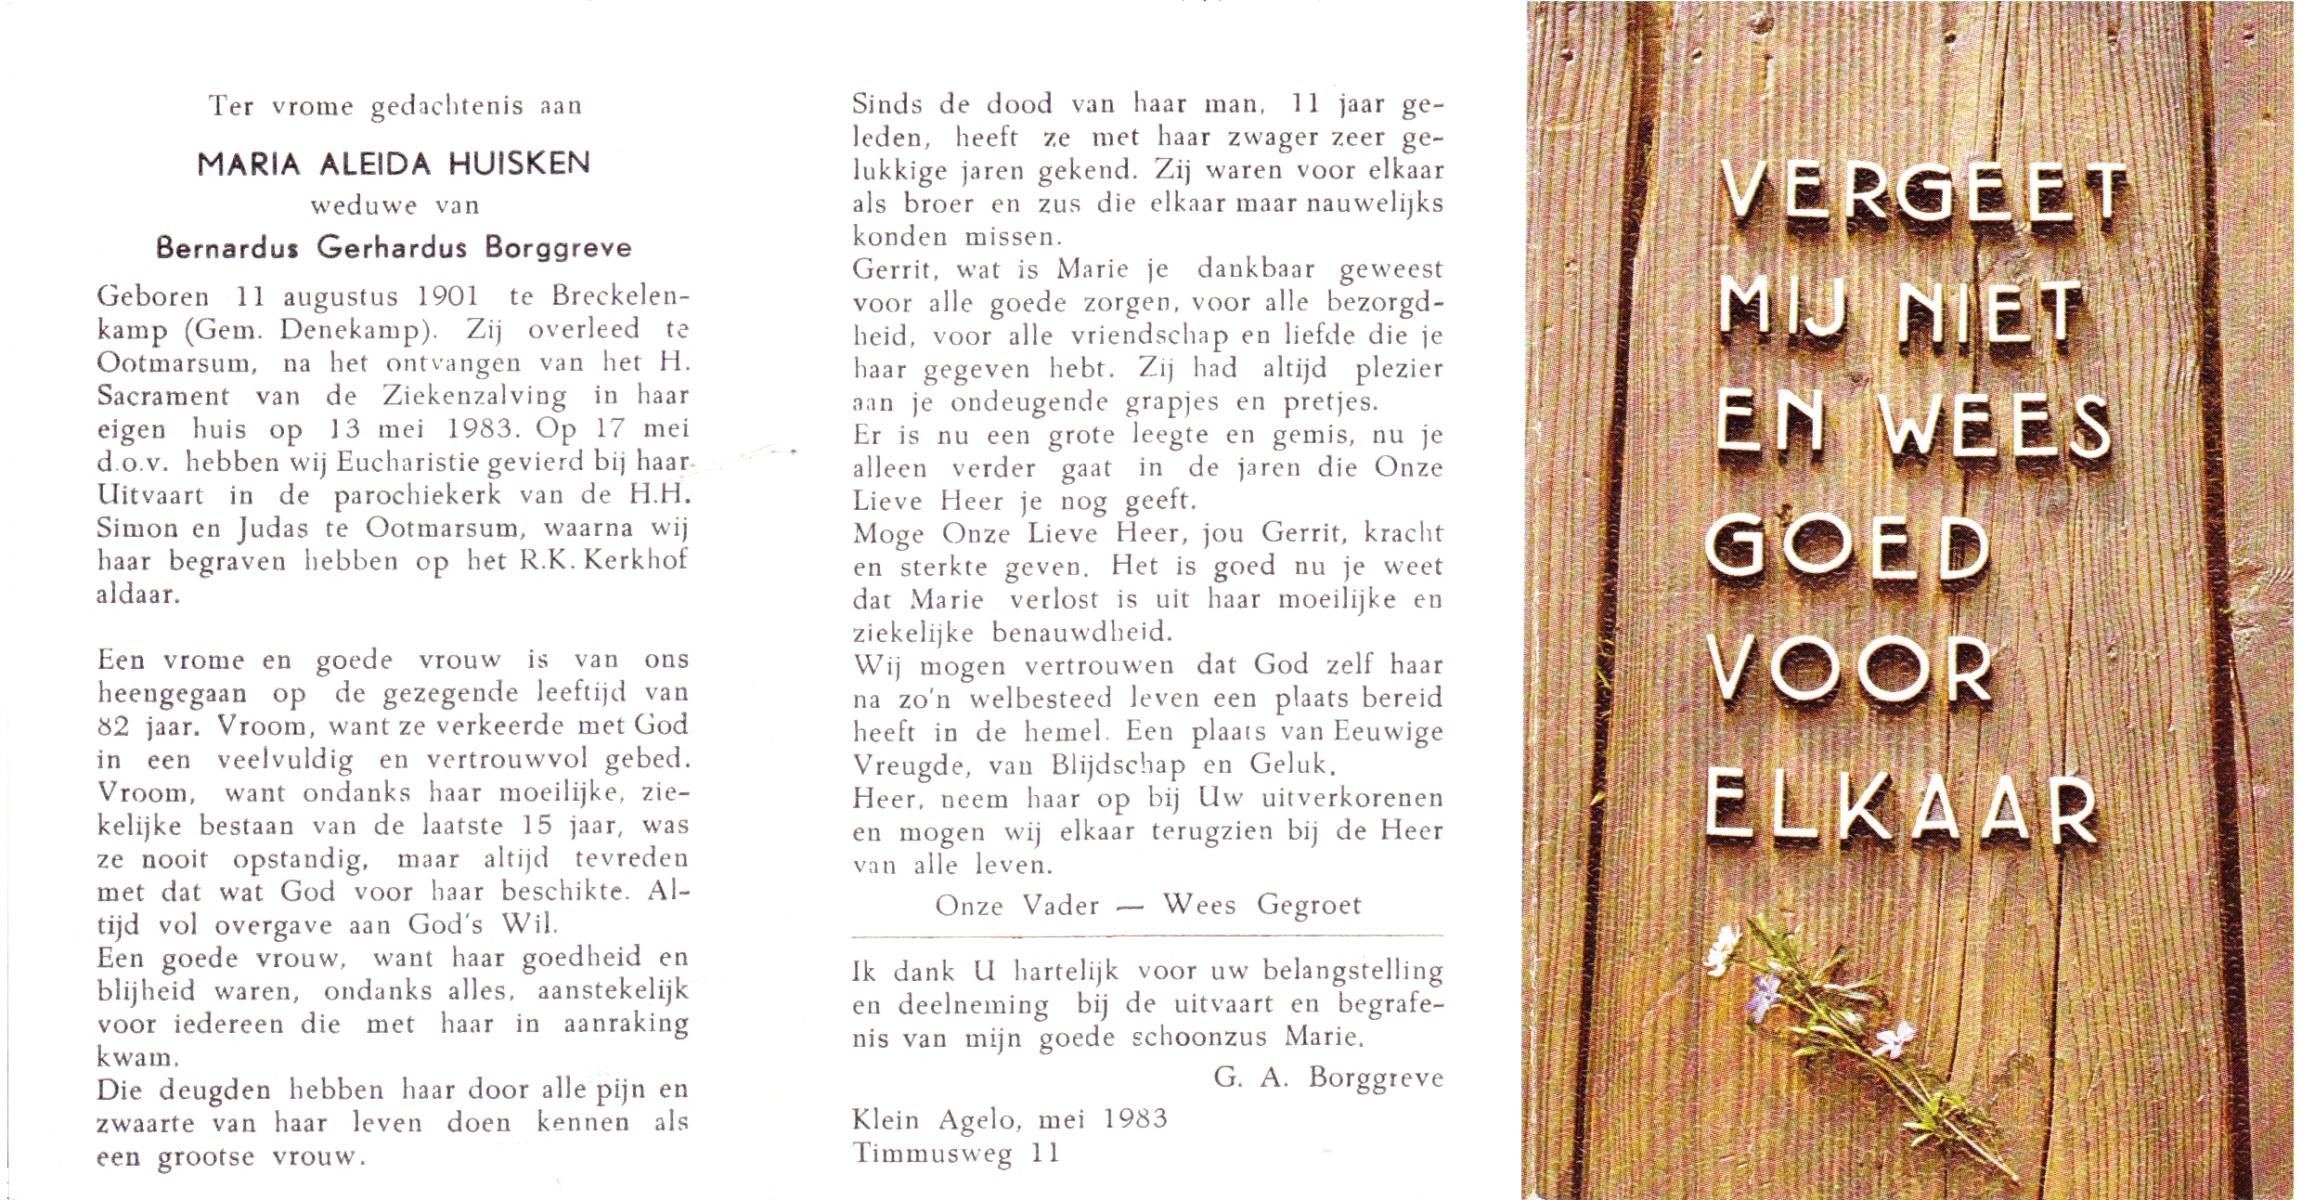 Ter vrome gedachtenis aan
MARIA ALEIDA HUISKEN
weduwe van
Bernardus Gerhardus Borggreve
Geboren 11 augustus 1901 te Breckelen-
kamp (Gem. Denekamp). Zij overleed te
Ootmarsum, na het ontvangen van het H.
Sacrament van de Ziekenzalving in haar
eigen huis op 13 mei 1983. Op 17 mei
d.o.v. hebben wij Eucharistie gevierd bij haar
Uitvaart in de parochiekerk van de H.H.
Simon en Judas te Ootmarsum, waarna wij
haar begraven hebben op het R.K. Kerkhof
aldaar.
Een vrome en goede vrouw is van ons
heengegaan op de gezegende leeftijd van
82 jaar. Vroom, want ze verkeerde met God
in een veelvuldig en vertrouwvol gebed.
Vroom, want ondanks haar moeilijke, zie-
kelijke bestaan van de laatste 15 jaar, was
ze nooit opstandig, maar altijd tevreden
met dat wat God voor haar beschikte. Al-
tijd vol overgave aan God's Wil.
Een goede vrouw, want haar goedheid en
blijheid waren, ondanks alles, aanstekelijk
voor iedereen die met haar in aanraking
kwam.
Die deugden hebben haar door alle pijn en
zwaarte van haar leven doen kennen als
een grootse vrouw.
Sinds de dood van haar man, 11 jaar ge-
leden, heeft ze met haar zwager zeer ge-
lukkige jaren gekend. Zij waren voor elkaar
als broer en zus die elkaar maar nauwelijks
konden missen.
Gerrit, wat is Marie je dankbaar geweest
voor alle goede zorgen, voor alle bezorgd-
heid, voor alle vriendschap en liefde die je
haar gegeven hebt. Zij had altijd plezier
aan je ondeugende grapjes en pretjes.
Er is nu een grote leegte en gemis, nu je
alleen verder gaat in de jaren die Onze
Lieve Heer je nog geeft.
Moge Onze Lieve Heer, jou Gerrit, kracht
en sterkte geven. Het is goed nu je weet
dat Marie verlost is uit haar moeilijke en
ziekelijke benauwdheid.
Wij mogen vertrouwen dat God zelf haar
na zo'n welbesteed leven een plaats bereid
heeft in de hemel. Een plaats van Eeuwige
Vreugde, van Blijdschap en Geluk.
Heer, neem haar op bij Uw uitverkorenen
en mogen wij elkaar terugzien bij de Heer
van alle leven.
Onze Vader — Wees Gegroet
Ik dank U hartelijk voor uw belangstelling
en deelneming bij de uitvaart en begrafe-
nis van mijn goede schoonzus Marie.
G. A. Borggreve
Klein Agelo, mei 1983
Timmusweg 11
VERGEET
MIJ NIET
EN WEES
GOED
VOOR
ELKAAR